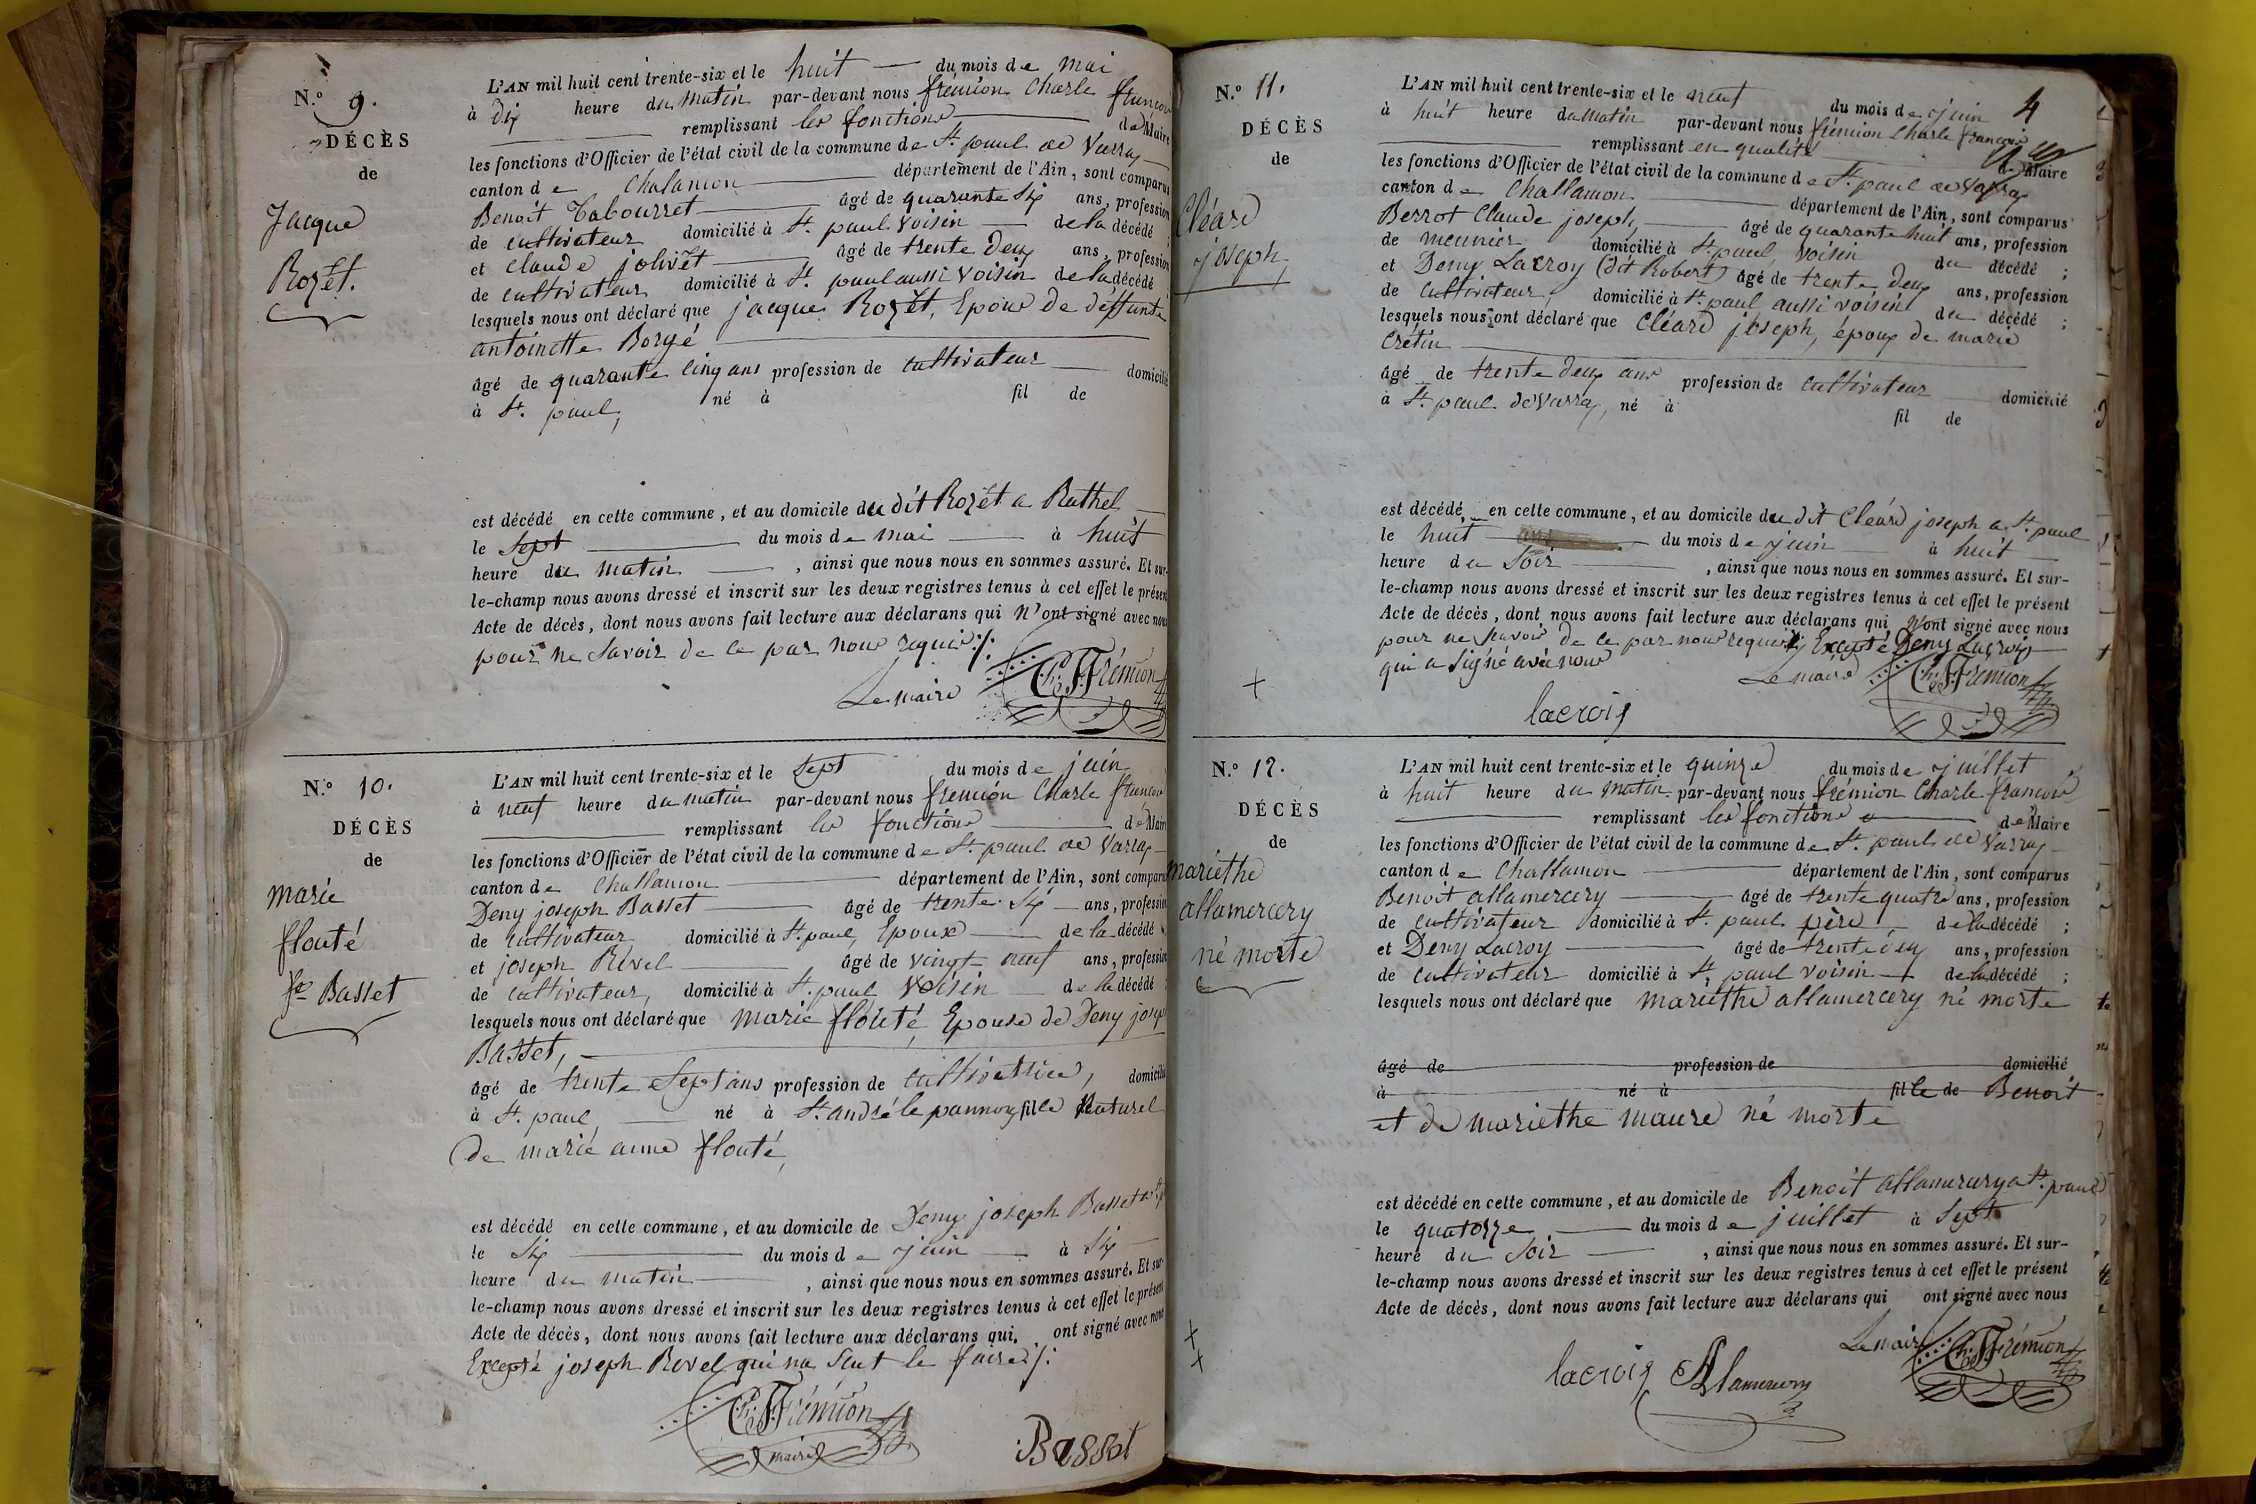 N.° 9.
DÉCÈS
de
Jacque
Rozét.
L'AN mil huit cent trente-six et le huit du mois de mai
à dix heure du matin par-devant nous frémion Charle françois
remplissant les fonctions de Maire
les fonctions d'Officier de l'état civil de la commune de St. paul de Varax
canton de Chalamon département de l'Ain, sont comparus
Benoit Tabourret âgé de quarante Six ans, profession
de cultivateur domicilié à St. paul voisin de la décédé ;
et claude jolivet âgé de trente Deux ans, profession
de cultivateur domicilié à St. paul aussi voisin de la décédé
lesquels nous ont déclaré que jacque Rozét, Epoux de déffunte
antoinette Borgé
âgé de quarante cinq ans profession de cultivateur domicilié
à St. paul, né à fil de
est décédé en cette commune, et au domicile du dit Rozét a Ruthel
le Sept du mois de mai à huit
heure du matin, ainsi que nous nous en sommes assuré. Et sur-
le-champ nous avons dressé et inscrit sur les deux registres tenus à cet effet le présent
Acte de décès, dont nous avons fait lecture aux déclarans qui n'ont signé avec nous
pour ne Savoir de ce par nous requis ./.
Le maire Ch. F. Frémion
N.° 10.
DÉCÈS
de
marie
flouté
fe Basset
L'AN mil huit cent trente-six et le Sept du mois de juin
à neuf heure du matin par-devant nous frémion Charle françois
remplissant les fonctions de Maire
les fonctions d'Officier de l'état civil de la commune de St. paul de Varax
canton de Challamon département de l'Ain, sont comparus
Deny joseph Basset âgé de trente Six ans, profession
de cultivateur domicilié à St. paul, Epoux de la décédé
et joseph Révél âgé de vingt neuf ans, profession
de cultivateur, domicilié à St. paul Voisin de la décédé
lesquels nous ont déclaré que marie flouté, Epouse de Deny joseph
Basset,
âgé de trente Sept ans profession de cultivatrice, domicilié
à St. paul, né à St. andré le pannoy fille Naturel
de marie anne flouté,
est décédé en cette commune, et au domicile de Deny joseph Basset a St. p
le Six du mois de juin à Six
heure du matin, ainsi que nous nous en sommes assuré. Et sur-
le-champ nous avons dressé et inscrit sur les deux registres tenus à cet effet le présent
Acte de décès, dont nous avons fait lecture aux déclarans qui ont signé avec nous
Excepté joseph Revel qui na Seut le faire ./.
Ch. F. Frémion
maire
Basset
4
N.° 11.
DÉCÈS
de
Cléard
joseph,
L'AN mil huit cent trente-six et le neuf du mois de juin
à huit heure du matin par-devant nous frémion Charle françois
remplissant en qualité de Maire
les fonctions d'Officier de l'état civil de la commune de St. paul de Varax
canton de Challamon département de l'Ain, sont comparus
Berrot Claude joseph, âgé de quarante huit ans, profession
de meunier domicilié à St. paul, voisin du décédé ;
et Deny Lacroy (dit Robert) âgé de trente deux ans, profession
de cultivateur, domicilié à St. paul aussi voisin du décédé ;
lesquels nous ont déclaré que Cléard joseph, époux de marie
Crétin
âgé de trente deux ans profession de cultivateur domicilié
à St. paul de Varax, né à fil de
est décédé en cette commune, et au domicile du dit Cléard joseph a St. paul
le huit du mois de juin à huit
heure du Soir, ainsi que nous nous en sommes assuré. Et sur-
le-champ nous avons dressé et inscrit sur les deux registres tenus à cet effet le présent
Acte de décès, dont nous avons fait lecture aux déclarans qui n'ont signé avec nous
pour ne savoir de ce par nous requis Excepté Deny Lacroix
qui a Signé avec nous
Le maire Ch. F. Frémion
lacroix
N.° 12.
DÉCÈS
de
mariethe
allamercery
né morte
L'AN mil huit cent trente-six et le quinze du mois de juillet
à huit heure du matin par-devant nous frémion Charle françois
remplissant les fonctions de Maire
les fonctions d'Officier de l'état civil de la commune de St. paul de Varax
canton de Challamon département de l'Ain, sont comparus
Benoit allamercery âgé de trente quatre ans, profession
de cultivateur domicilié à St. paul père, de la décédé ;
et Deny Lacroy âgé de trente deux ans, profession
de cultivateur domicilié à St. paul voisin de la décédé ;
lesquels nous ont déclaré que mariethe allamercery né morte
âgé de profession de domicilié
à né à fille de Benoit
et de mariethe maure né morte
est décédé en cette commune, et au domicile de Benoit allamercery a St. paul
le quatorze du mois de juillet à Sept
heure du Soir, ainsi que nous nous en sommes assuré. Et sur-
le-champ nous avons dressé et inscrit sur les deux registres tenus à cet effet le présent
Acte de décès, dont nous avons fait lecture aux déclarans qui ont signé avec nous
Le maire Ch. F. Frémion
lacroix Allamercery